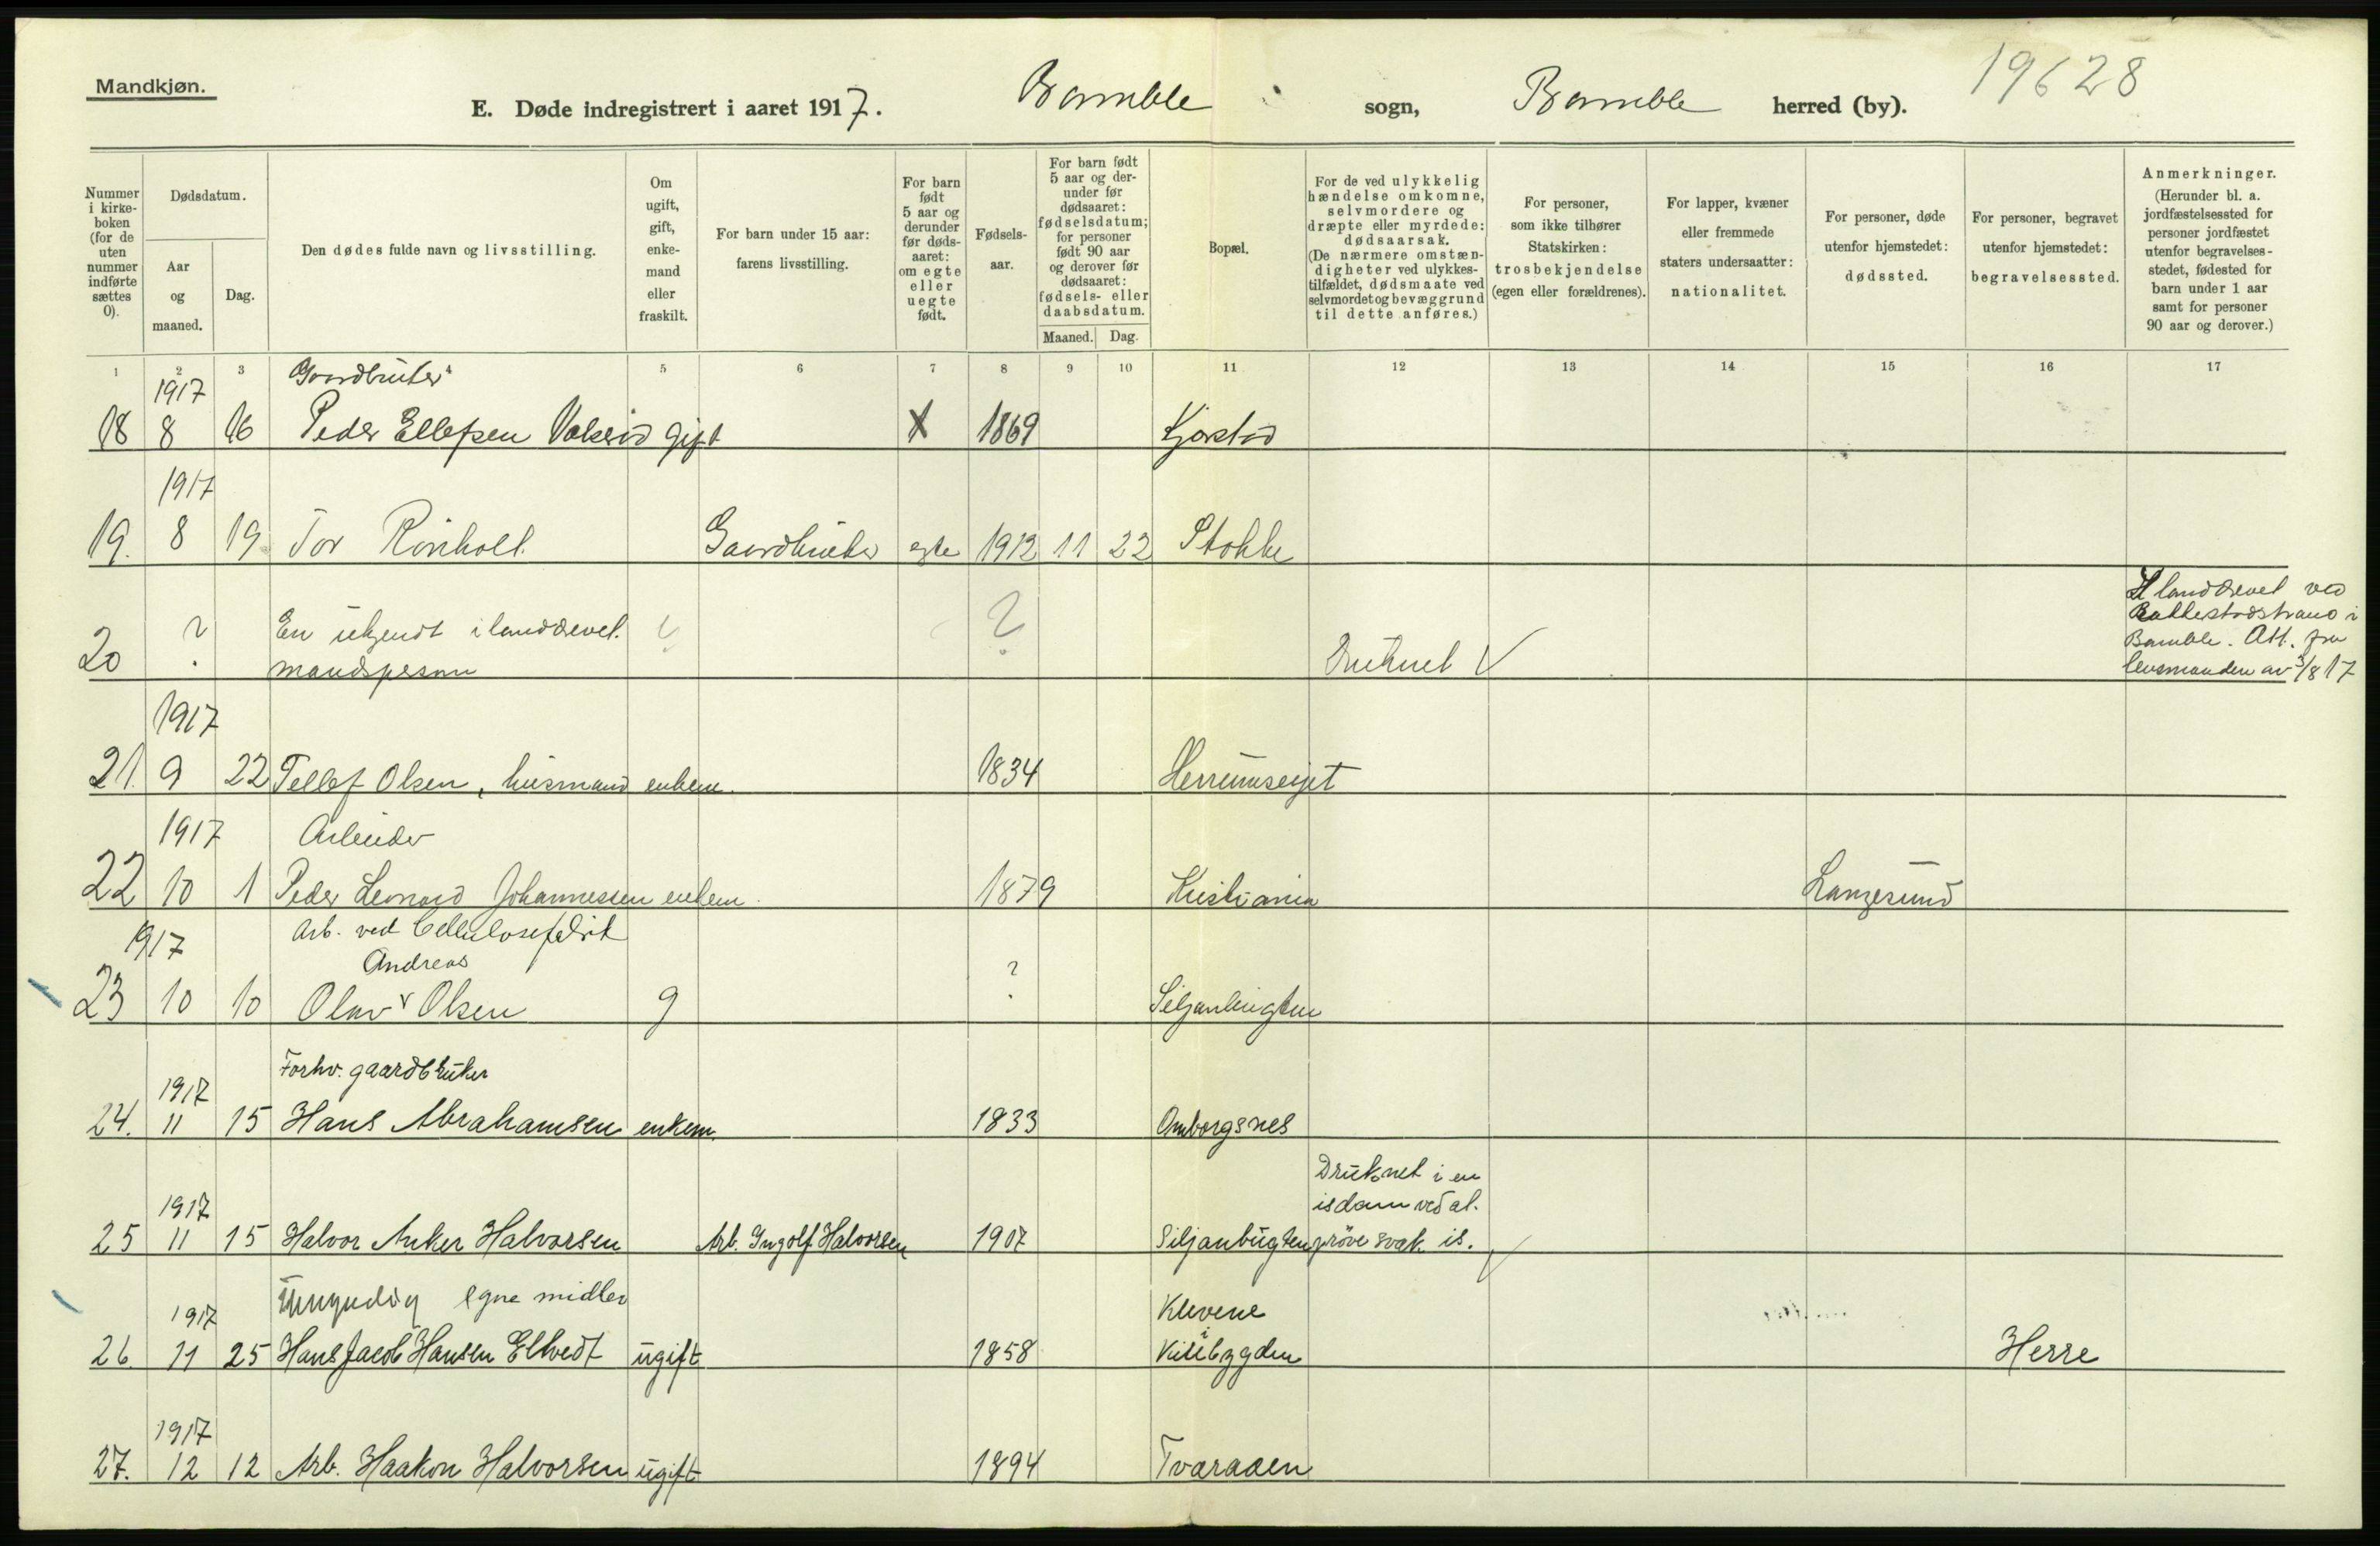 Mandkjøn.
E. Døde indregistrert i aaret 1917. Bamble sogn, Bamble herred (by).
19628
Nummer i kirke- boken (for de uten nummer indførte sættes 0).
Dødsdatum.
Aar og maaned.
Dag.
Den dødes fulde navn og livsstilling.
Om ugift, gift, enke- mand eller fraskilt.
For barn under 15 aar: farens livsstilling.
For barn født 5 aar og derunder før døds- aaret: om egte eller uegte født.
Fødsels- aar.
For barn født 5 aar og der- under før dødsaaret: fødselsdatum; for personer født 90 aar og derover før dødsaaret: fødsels- eller daabsdatum.
Maaned. Dag.
Bopæl.
For de ved ulykkelig hændelse omkomne, selvmordere og dræpte eller myrdede: dødsaarsak. (De nærmere omstæn- digheter ved ulykkes- tilfældet, dødsmaate ved selvmordet og bevæggrund til dette anføres.)
For personer, som ikke tilhører Statskirken: trosbekjendelse (egen eller forældrenes).
For lapper, kvæner eller fremmede staters undersaatter: nationalitet.
For personer, døde utenfor hjemstedet: dødssted.
For personer, begravet utenfor hjemstedet: begravelsessted.
Anmerkninger. (Herunder bl. a. jordfæstelsessted for personer jordfæstet utenfor begravelses- stedet, fødested for barn under 1 aar samt for personer 90 aar og derover.)
1 2 3 4 5 6 7 8 9 10 11 12 13 14 15 16 17
1917 Gaardbruker
18 8 16 Peder Ellefsen Valsrød gift X 1869 Kjørstad
1917
19. 8 19 Tor Rönholt. Gaardbruker egte 1912 11 22 Stokke
Ilanddrevet ved
Bakkestadstrand i
20 ? En ukjendt ilanddrevet ? ? Bamble. Att. fra
mandsperson Druknet V lensmanden av 3/8 17
1917
21. 9 22 Tellef Olsen, husmand enkem. 1834 Herrumseyet
1917 Arbeider
22 10 1 Peder Leonard Johannessen enkem. 1879 Kristiania Langesund
Arb. ved Cellulosefabrik
1917 Andreas
23 10 10 Olav Olsen g ? Siljanbugten
Forhv. gaardbruker
1917
24. 11 15 Hans Abrahamsen enkem. 1833 Omborgsnes
Druknet i en
1917 isdam ved at
25 11 15 Halvor Anker Halvorsen Arb. Ingolf Halvorsen 1907 Siljanbugten prøve svak is.
Umyndig egne midler Klevene
1917 i
26. 11 25 Hans Jacob Hansen Eltvedt ugift 1858 Kilebygden Herre
1917
27. 12 12 Arb. Haakon Halvorsen ugift 1894 Tvaraaen